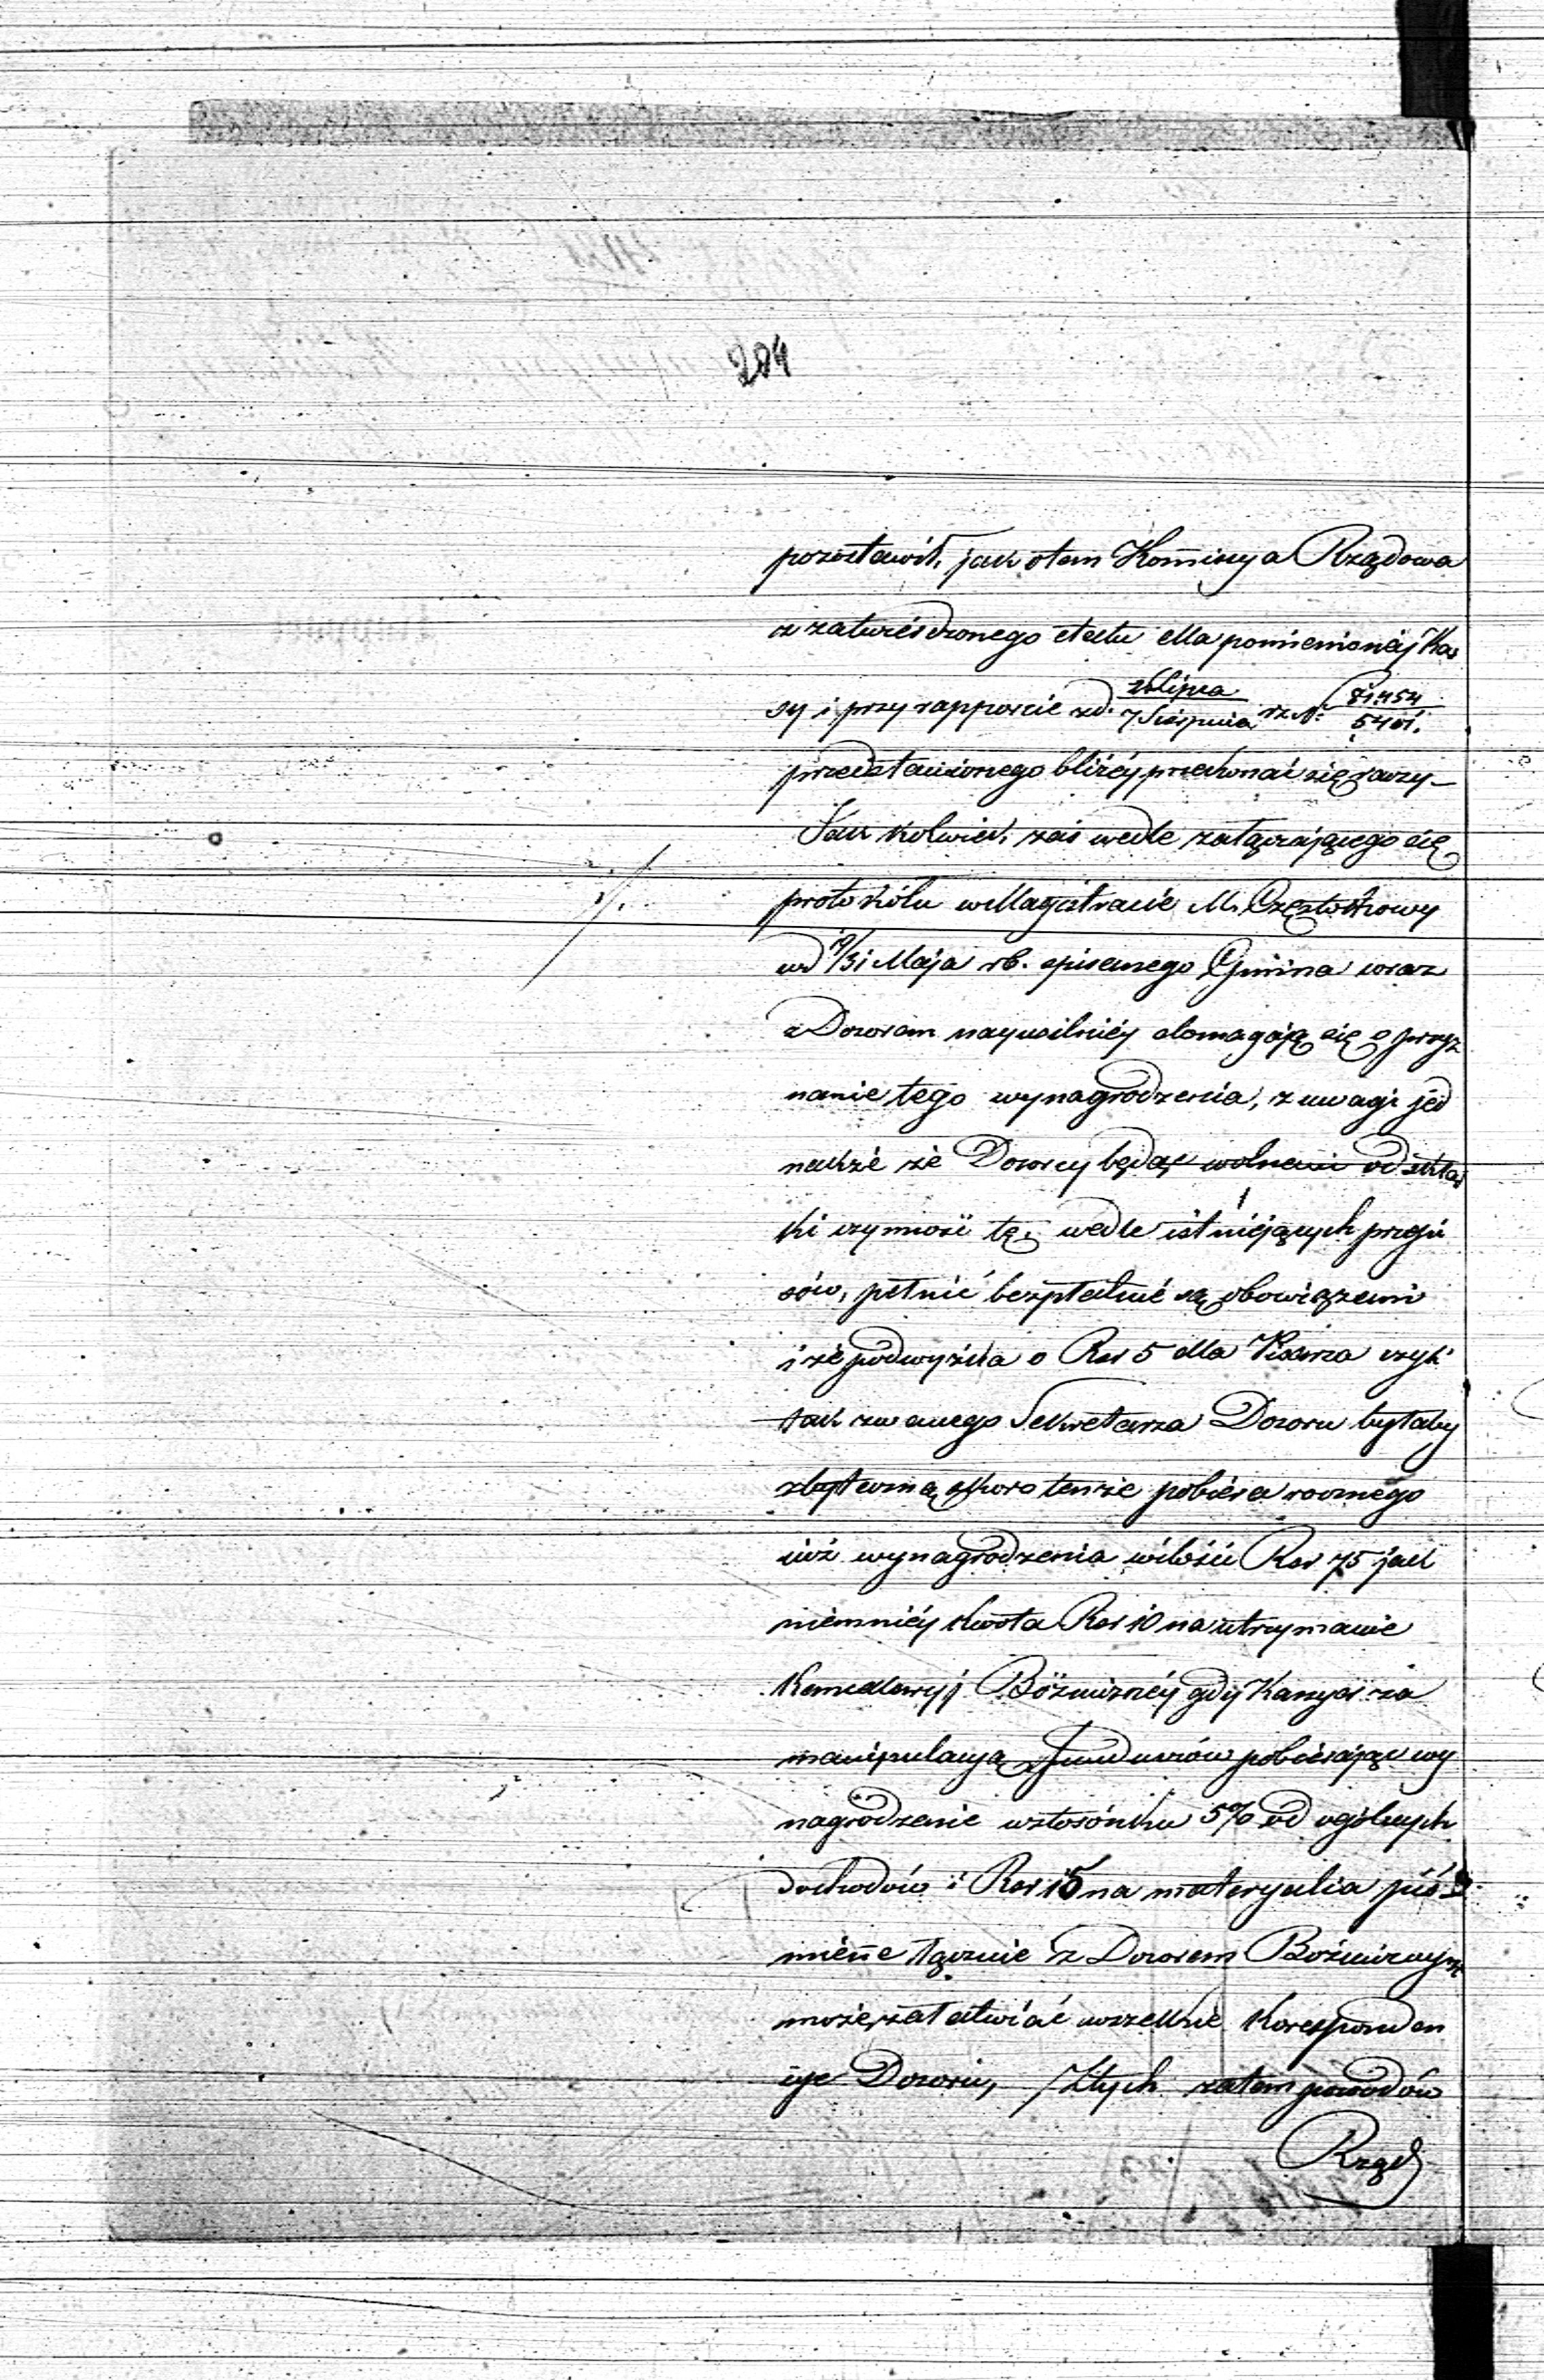 284
pozostawił, jak otem Kommissya Rządowa
z zatwierdzonego etatu dla pomienionéj Kas
sy i przy rapporcie zd. 26 Lipca / 7 Sierpnia rz. N: 81454 / 5401.
przedstawionego bliżéy przekonać się raczy_
Jak kolwiek zaś wedle załączającego się
protokółu w Magistracie M. Częstochowy
wd 19/31 Maja rb. spisanego Gmina wraz
z Dozorem nayusilniéy domagają się o przyz
nanie tego wynagrodzenia, z uwagi jed
nakże że Dozorcy będąc wolnemi od skład
ki czynność tę, wedle istniejących przepi
sów, pełnić bezpłatnie są obowiązani
i że podwyżka o Rsr 5 dla Pisarza czyli
tak zwanego Sekretarza Dozoru byłaby
zbyteczną skoro tenże pobiera rocznego
iuż wynagrodzenia wilości Rsr 75 jak
niemniéy kwota Rsr 10 na utrzymanie
Kancellaryj Bóżnicznéy gdy Kassyer za
manipulacyą Funduszów pobierając wy
nagrodzenie wstosónku 5% od ogólnych
dochodów i Rsr 15 na materyalia piś
mienne łącznie z Dozorem Bóżniczym
może załatwiać wszelkie Koresponden
cye Dozoru, Ztych zatem powodów
Rząd